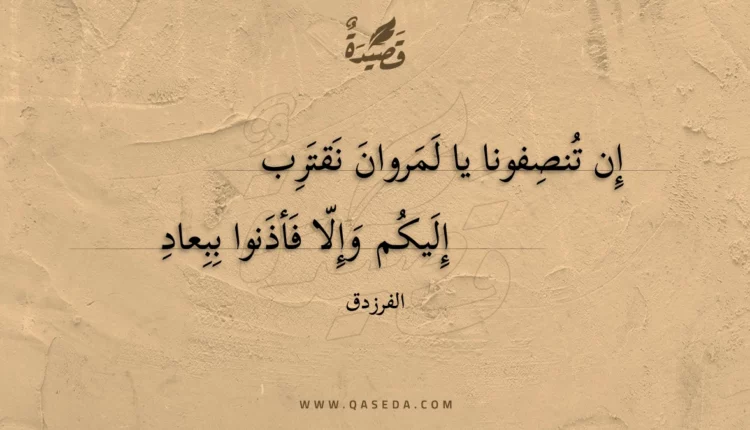 قَصِيدَةٌ
إِن تُنصِفونا يا لَمَروانَ نَقتَرِب
إِلَيكُم وَإِلّا فَأذَنوا بِبِعادِ
الفرزدق
WWW.QASEDA.COM